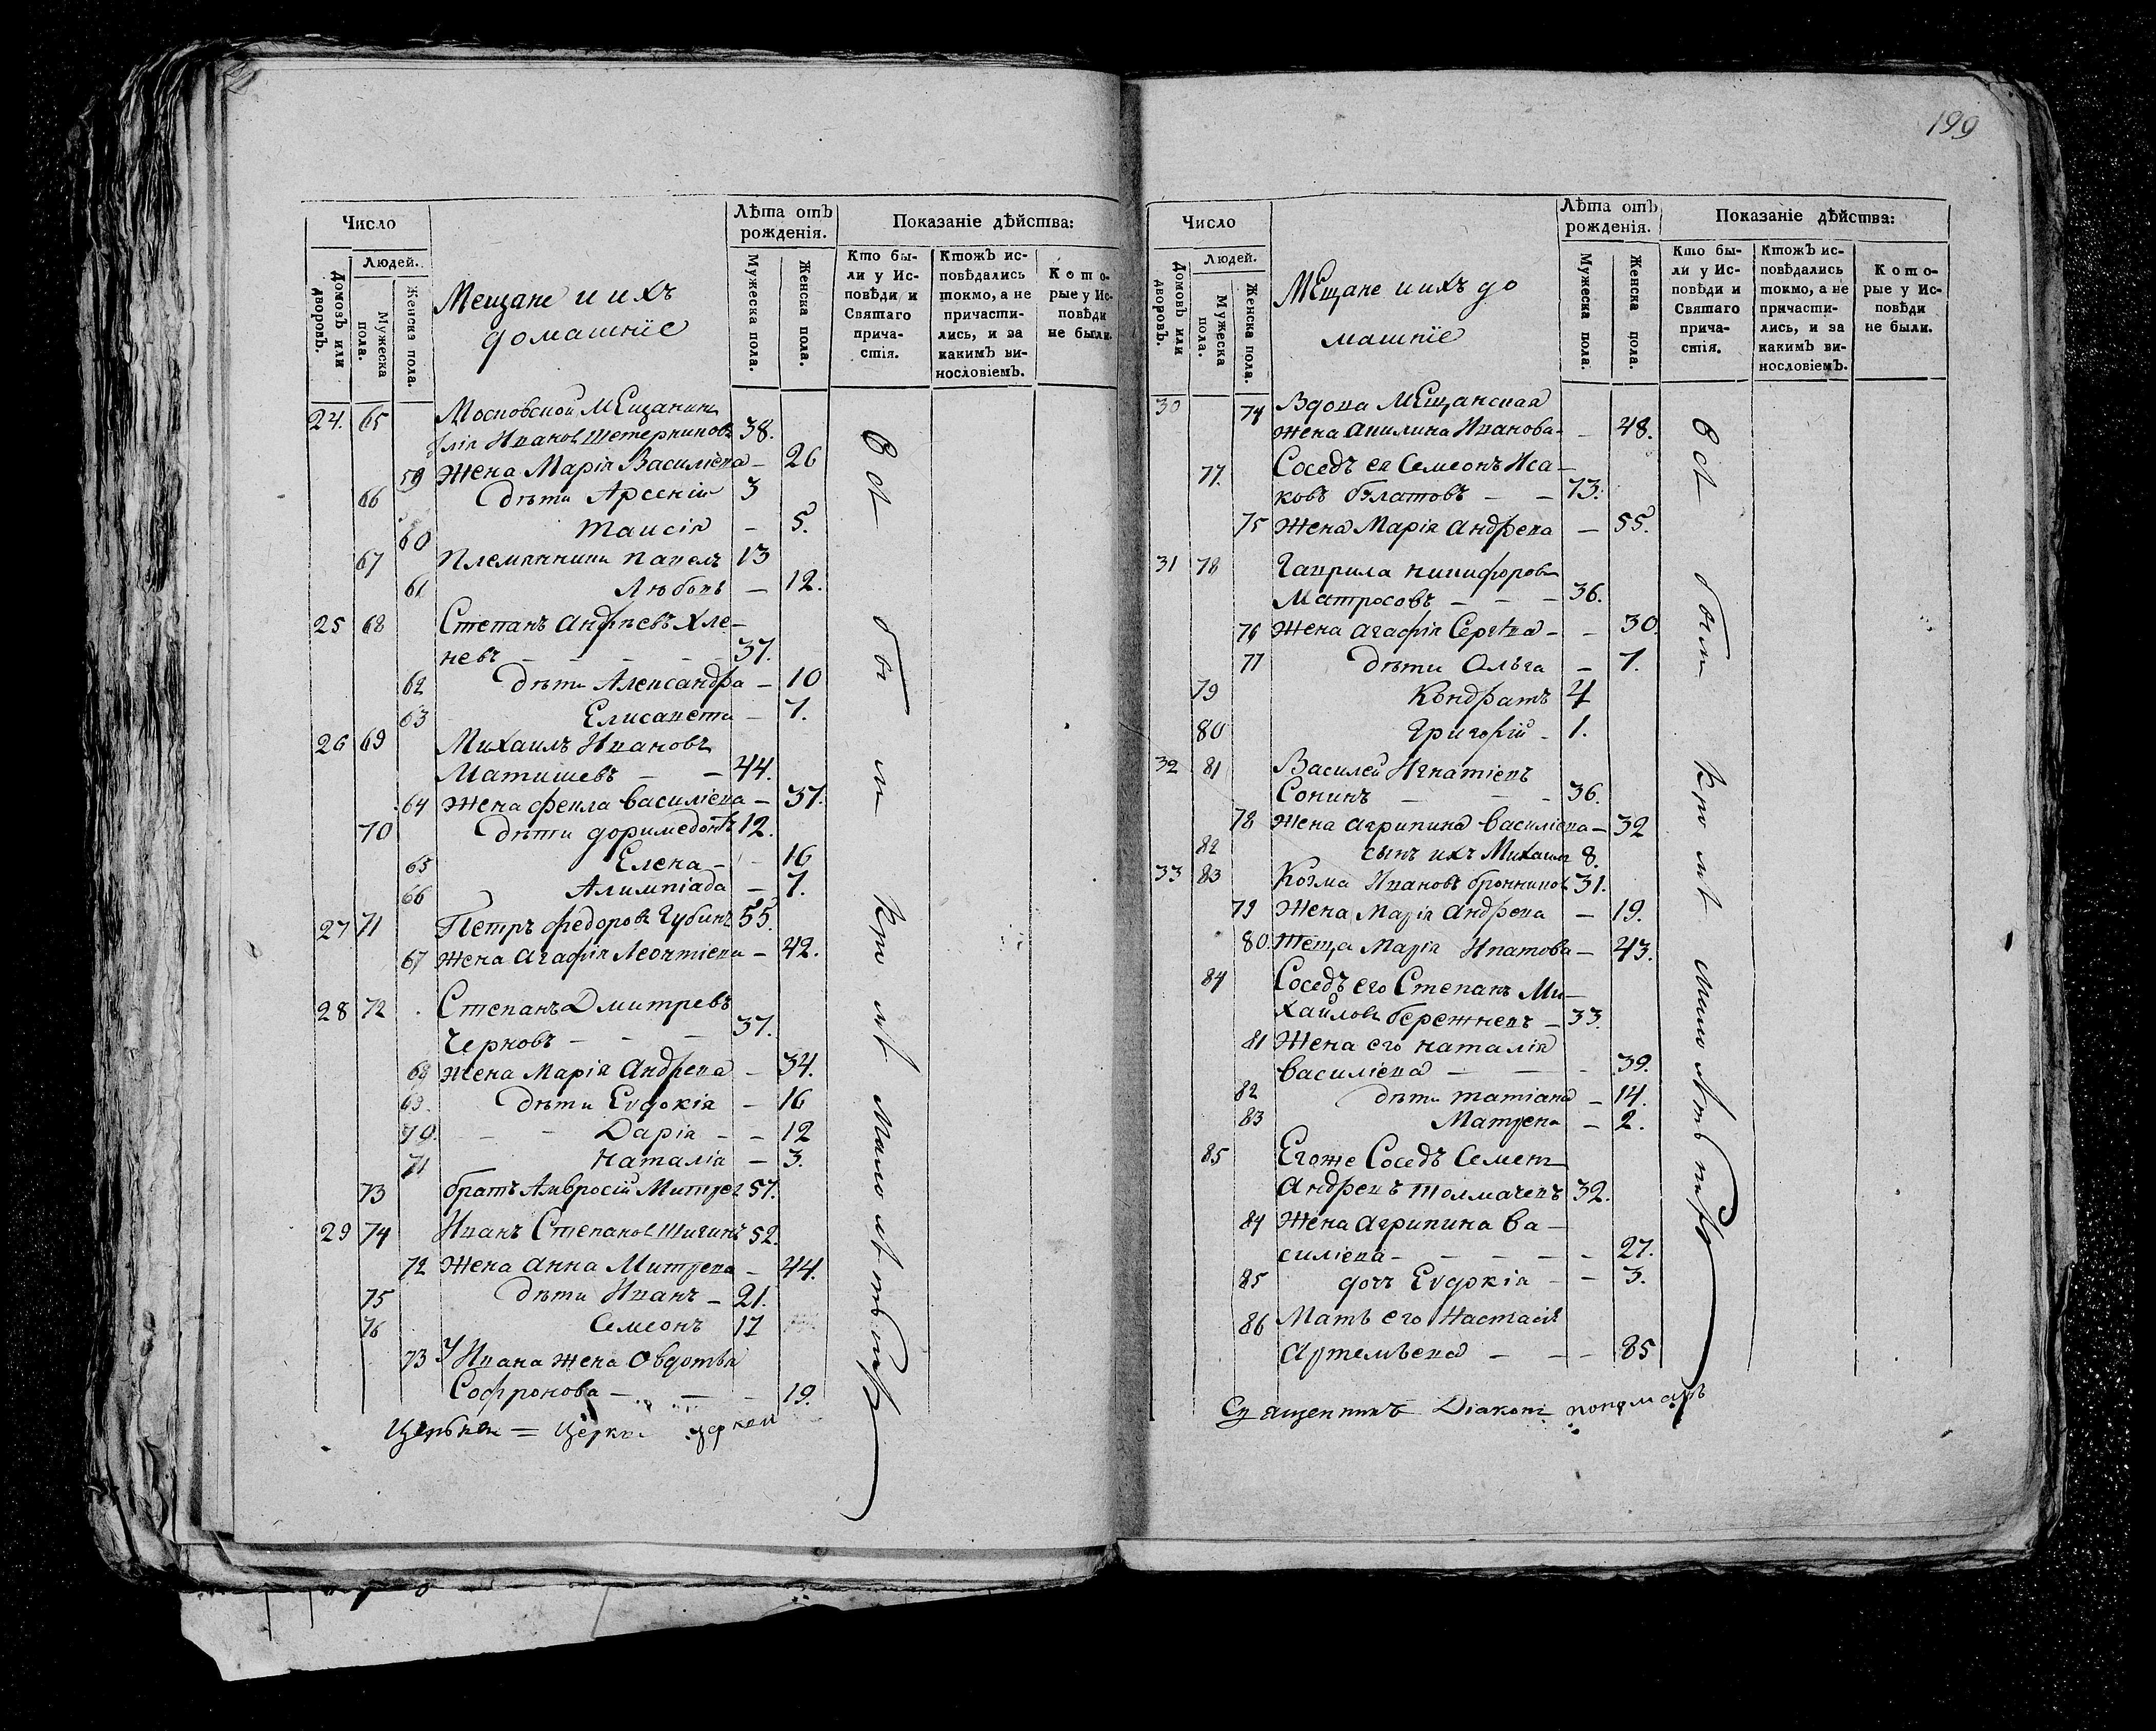 199
Число
Лѣта отъ рожденія.
Показаніе дѣйства:
Домовъ или дворовъ.
Людей.
Мужеска пола.
Женска пола.
Мещане и ихъ
домашнїе
Мужеска пола.
Женска пола.
Кто были у Исповѣди и Святаго причастія.
Ктожъ исповѣдались токмо, а не причастились, и за какимъ винословіемъ.
Которые у Исповѣди не были.
24. 65 Московской мещанинъ
Илія Ивановъ 38.
59 Жена Марія Василіева – 26
66 дѣти Арсеній 3
60 Таисія – 5.
67 Племянники Павелъ 13
61 Любовь – 12.
25 68 Степанъ Андреевъ Хле–
невъ – – – – 37.
62 дѣти Александра – 10
63 Елисавета – 7.
26 69 Михаилъ Ивановъ
Матишевъ – – 44.
64 Жена Фекла Василіева – 37.
70 дѣти Доримедонтъ 12.
65 Елена – – 16
66 Алимпіада – 7.
27 71 Петръ Федоровъ Губинъ 55.
67 Жена Агафія Леонтіева – 42.
28 72 Степанъ Дмитревъ
Черновъ – – – 37.
68 Жена Марія Андрева – 34.
69. дѣти Еѵдокія – 16
70. – – Дарія – – 12
71 Наталія – 3.
73 братъ Амвросій Митрев 57.
29 74 Иванъ Степанов Шигинъ 52.
72 Жена Анна Митрева – 44.
75 дѣти Иванъ – 21.
76 Семеонъ 17
73 У Ивана жена Овдотья
Софронова – – – 19.
Всѣ были кромѣ
Число
Лѣта отъ рожденія.
Показаніе дѣйства:
Домовъ или дворовъ.
Людей.
Мужеска пола.
Женска пола.
Мещане и ихъ до
машнїе
Мужеска пола.
Женска пола.
Кто были у Исповѣди и Святаго причастія.
Ктожъ исповѣдались токмо, а не причастились, и за какимъ винословіемъ.
Которые у Исповѣди не были.
30 74 Вдова мещанская
жена Акилина Иванова – – 48.
77. Соседъ ея Семеонъ Иса–
ковъ Булатовъ – – 73.
75 Жена Марія Андрева – 55.
31 78 Гаврила Никифоровъ
Матросовъ – – – 36.
76 Жена Агафія Сергѣва – – 30.
77 дѣти Ольга – 7.
79 Кондратъ 4
80 Григорій – 1.
32 81 Василей Игнатіевъ
Сонинъ – – – 36.
78 Жена Агрипина Василіева – 32
82 сынъ ихъ Михаилъ 8.
33 83 Козма Ивановъ Бронников 31.
79 Жена Марія Андрева – 19.
80. Теща Марія Ипатова – 43.
84 Соседъ его Степанъ Ми–
хайловъ Бережневъ – 33.
81 Жена его Наталія
Василіева – – – 39.
82 дѣти Татіана – 14.
83 Матрена – 2.
85 Егоже Соседъ Семенъ
Андревъ Толмачевъ 32.
84 Жена Агрипина Ва–
силіева – – – – – 27.
85 дочь Еѵдокія – – 3.
86 Мать его Настасія
Артемьева – – – 85
Всѣ были кромѣ малолѣтныхъ
Церькви = Церкви церкви
Священникъ Діаконъ пономарь